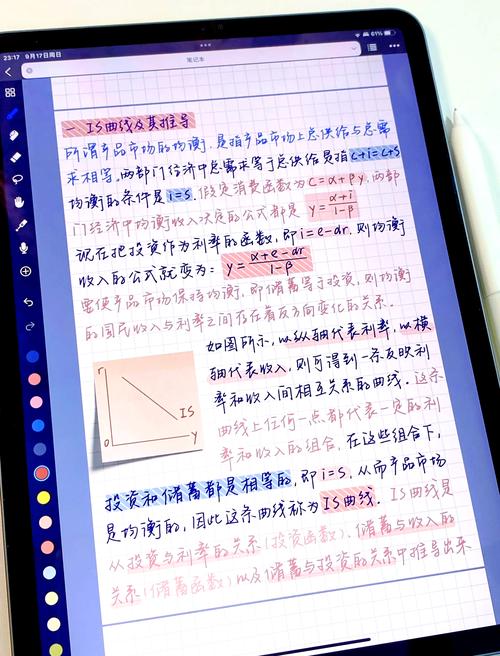 23:17 9月17日周日
61%
笔记本
一 IS曲线及其推导
所谓产品市场的均衡,是指产品市场上总供给与总需
求相等,两部门经济中总需求等于总供给是指c+i=c+s
均衡的条件是i=s.假定消费函数为c=α+βy,两部
门经济中均衡收入决定的公式都是 y=α+i/1-β
现在把投资作为利率的函数,即i=e-dr.则均衡
收入的公式就变为: y=α+e-dr/1-β
要使产品市场保持均衡,即储蓄等于投资,则均衡
的国民收入与利率之间存在着反方向变化的关系.
如图所示,以纵轴代表利率,以横
轴代表收入,则可得到一条反映利
率和收入间相互关系的曲线.这条
曲线上任何一点都代表一定的利
率和收入的组合,在这些组合下,
r
IS
0
y
投资和储蓄都是相等的,即i=s,从而产品市场
是均衡的,因此这条曲线称为IS曲线.IS曲线是
从投资与利率的关系(投资函数)、储蓄与收入的
关系(储蓄函数)以及储蓄与投资的关系中推导出来